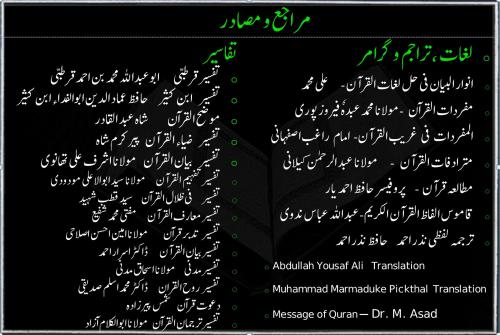 مراجع و مصادر
لغات، تراجم و گرامر
انوار البیان فی حل لغات القرآن - علی محمد
مفردات القرآن - مولانا محمد عبدہٗ فیروز پوری
المفردات فی غریب القرآن - امام راغب اصفہانی
مترادفات القرآن - مولانا عبدالرحمٰن کیلانی
مطالعہ قرآن - پروفیسر حافظ احمد یار
قاموس الفاظ القرآن الکریم - عبداللہ عباس ندوی
ترجمہ لفظی نذر احمد حافظ نذر احمد
Abdullah Yousaf Ali Translation
Muhammad Marmaduke Pickthal Translation
Message of Quran — Dr. M. Asad
تفاسیر
تفسیر قرطبی ابو عبداللہ محمد بن احمد قرطبی
تفسیر ابن کثیر حافظ عمادالدین ابوالفداء ابن کثیر
موضح القرآن شاہ عبدالقادر
تفسیر ضیاء القرآن پیر کرم شاہ
تفسیر بیان القرآن مولانا اشرف علی تھانوی
تفسیر تفہیم القرآن مولانا سید ابوالاعلی مودودی
تفسیر فی ظلال القرآن سید قطب شہید
تفسیر معارف القرآن مفتی محمد شفیع
تفسیر تدبر قرآن مولانا امین احسن اصلاحی
تفسیر بیان القرآن ڈاکٹر اسرار احمد
تفسیر مدنی مولانا اسحاق مدنی
تفسیر روح القرآن ڈاکٹر محمد اسلم صدیقی
دعوت قرآن شمس پیرزادہ
تفسیر ترجمان القرآن مولانا ابوالکلام آزاد